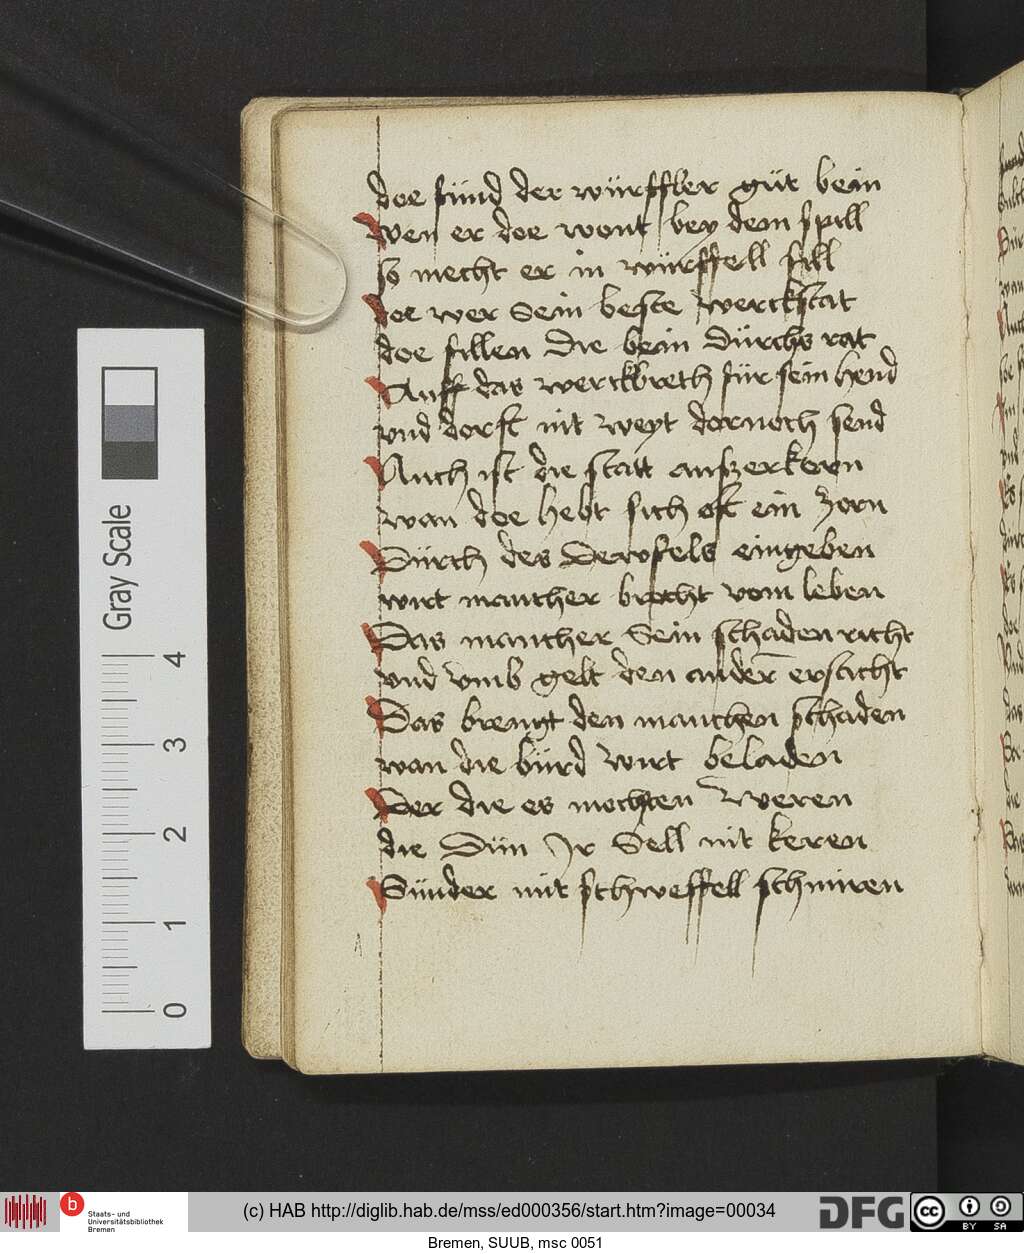 doe fünd der würffler güt bein
Wen er doe wont bey dem spill
so mecht er in würffell fill
doe wer Sein beste werckstat
doe fillen die bein dürchs rat
Auff das werckbreth für sein hend
vnd dorft nit weyt dornoch send
Auch ist die statt auszerkorn
wan doe hebt sich oft ein zorn
Dürch des Dewfels eingeben
wirt mancher brocht vom leben
Das mancher Sein schaden richt
vnd vmb gelt den ander̄ ersticht
Das brengt den manchen schaden
wan die bürd wirt beladen
Der die es mochten Weren
die Dün Jr Sell nit keren
Sünder mit schweffell schmiren
Gray Scale
4
3
2
1
0
b
Staats- und
Universitätsbibliothek
Bremen
(c) HAB http://diglib.hab.de/mss/ed000356/start.htm?image=00034
DFG
cc
BY SA
Bremen, SUUB, msc 0051